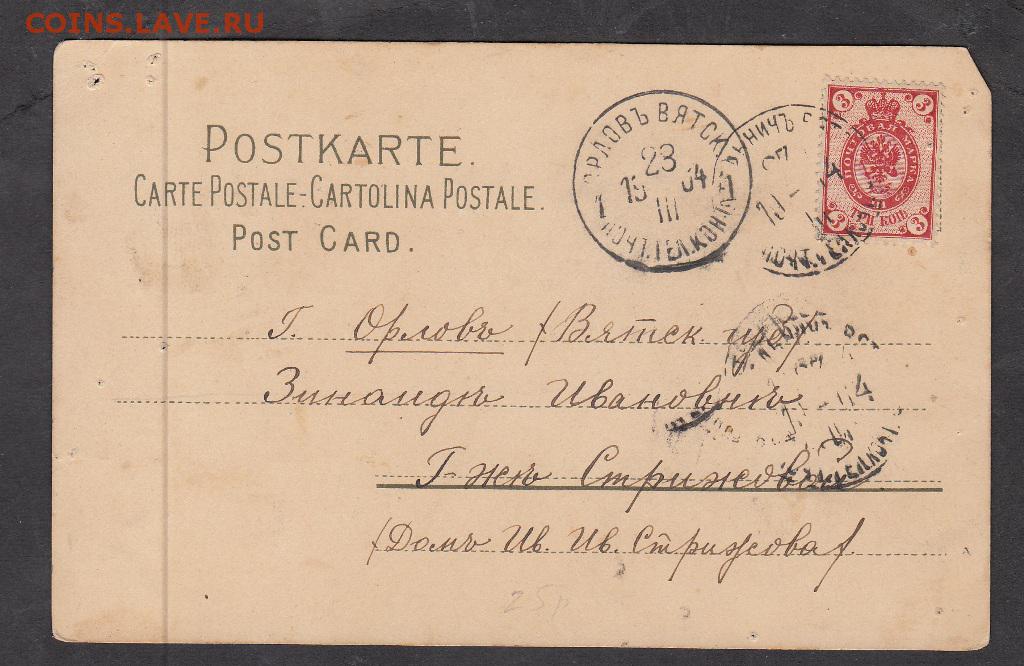 COINS.LAVE.RU
POSTKARTE.
CARTE POSTALE-CARTOLINA POSTALE.
POST CARD.
ОРЛОВЪ ВЯТСК.
23
15 04
III
1 1
3 3
ПОЧТОВАЯ МАРКА
ТРИ КОП.
3 3
Г. Орловъ (Вятск. губ)
Зинаидѣ Ивановнѣ
Г-жѣ Стрижовой
(Домъ Ив. Ив. Стрижова)
25р